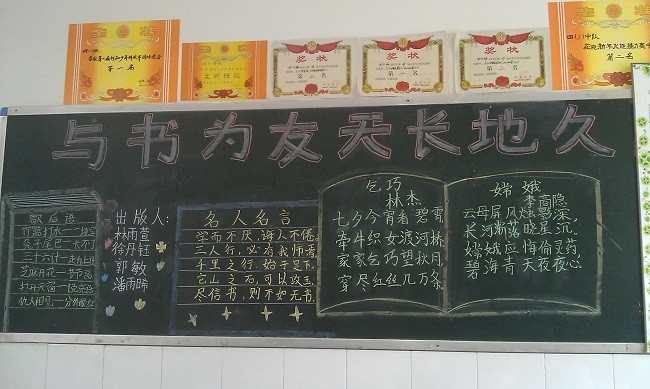 第一名
奖状
奖状
奖状
第二名
与书为友天长地久
歇后语
竹篮打水一场空
兔子尾巴—长不了
三十六计—走为上
芝麻开花—节节高
仇人相见—分外眼红
出版人:
林雨萱
徐丹钰
郭敏
潘雨晞
名人名言
学而不厌,诲人不倦。
三人行,必有我师焉
千里之行,始于足下。
它山之石,可以攻玉
尽信书,则不如无书
乞巧
林杰
七夕今宵看碧霄
牵牛织女渡河桥
家家乞巧望秋月
穿尽红丝几万条
嫦娥
李商隐
云母屏风烛影深,
长河渐落晓星沉.
嫦娥应悔偷灵药
碧海青天夜夜心,